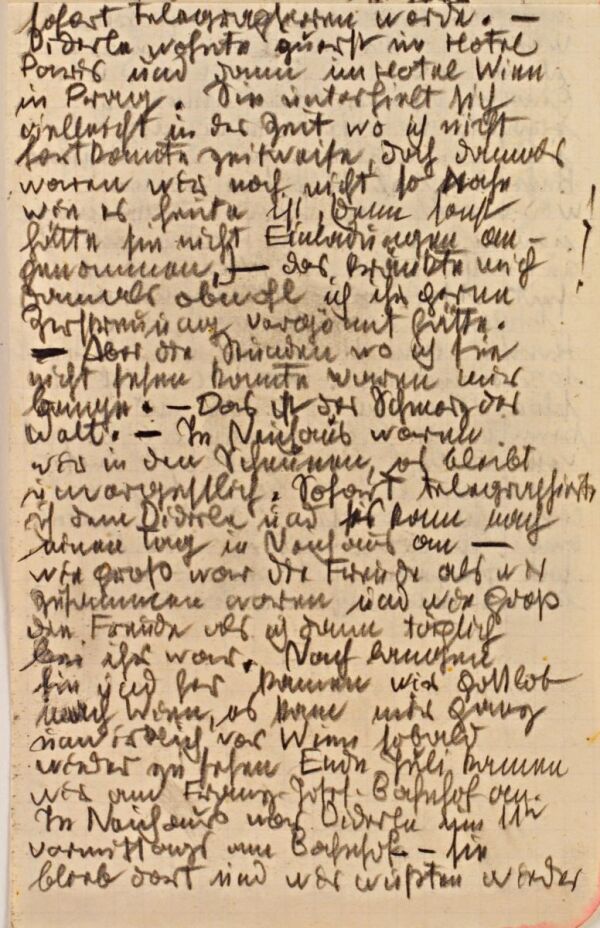 sofort telegraphieren werde. —
Diderle wohnte zuerst im Hotel
Paris und dann im Hotel Wien
in Prag. Sie unterhielt sich
vielleicht in der Zeit wo ich nicht
fort konnte zeitweise, doch damals
waren wir noch nicht so nahe
wie es heute ist, denn sonst
hätte sie nicht Einladungen an-
genommen, — das kränkte mich !
damals obwohl ich ihr gerne
Zerstreuung vergönnt hätte.
— Aber die Stunden wo ich sie
nicht sehen konnte waren mir
bange. — Das ist der Schmerz der
Welt. — In Neuhaus waren
wir in den Scheunen, es bleibt
unvergeßlich. Sofort telegraphierte
ich dem Diderle und es kam nach
einen Tag in Neuhaus an —
wie groß war die Freude als wir
zusammen waren und wie groß
die Freude als ich dann täglich
bei ihr war. Nach langem
hin und her kamen wir Gottlob
nach Wien, es kam mir ganz
unwirklich vor Wien sobald
wieder zu sehen Ende Juli kamen
wir am Franz-Josef-Bahnhof an.
In Neuhaus war Diderle um 11h
vormittags am Bahnhof — sie
blieb dort und wir wußten wieder